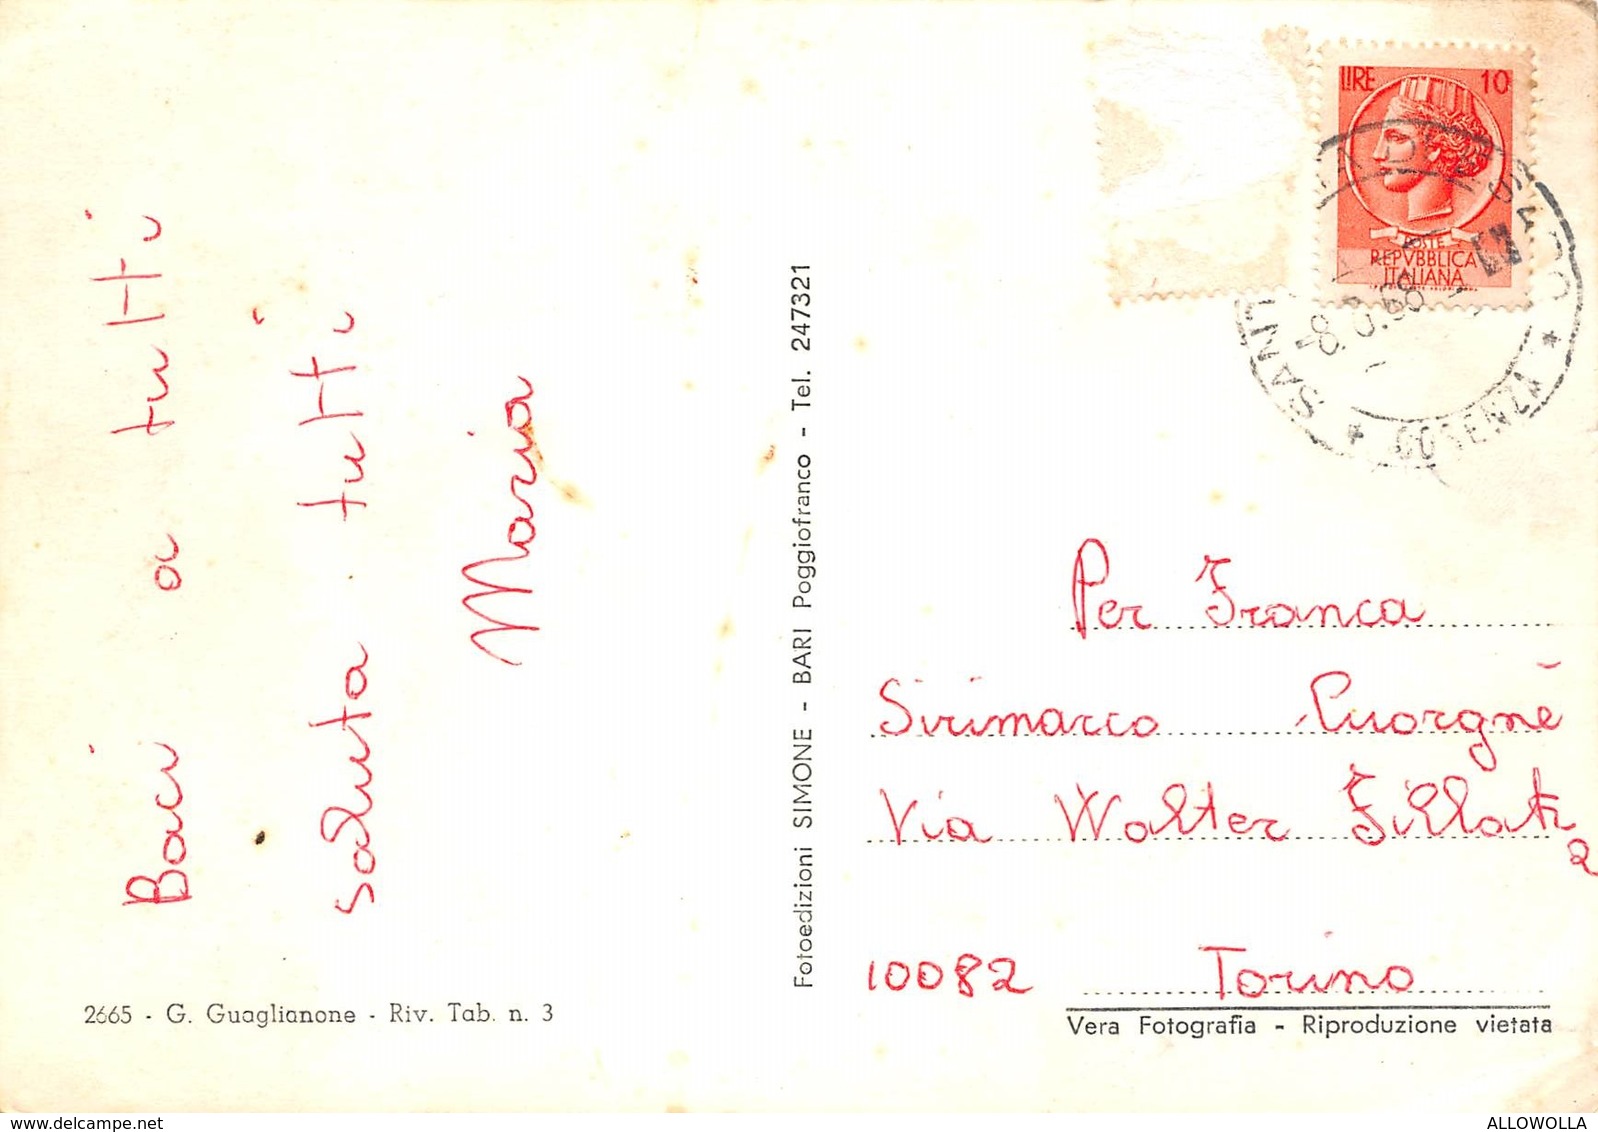 Baci a tutti
saluta tutti
Maria
2665 - G. Guaglianone - Riv. Tab. n. 3
Fotoedizioni SIMONE - BARI Poggiofranco - Tel. 247321
LIRE 10
POSTE
REPVBBLICA
ITALIANA
* COSENZA *
Per Franca
Sirimarco Cuorgnè
Via Walter Fillak
2
10082 Torino
Vera Fotografia - Riproduzione vietata
ALLOWOLLA